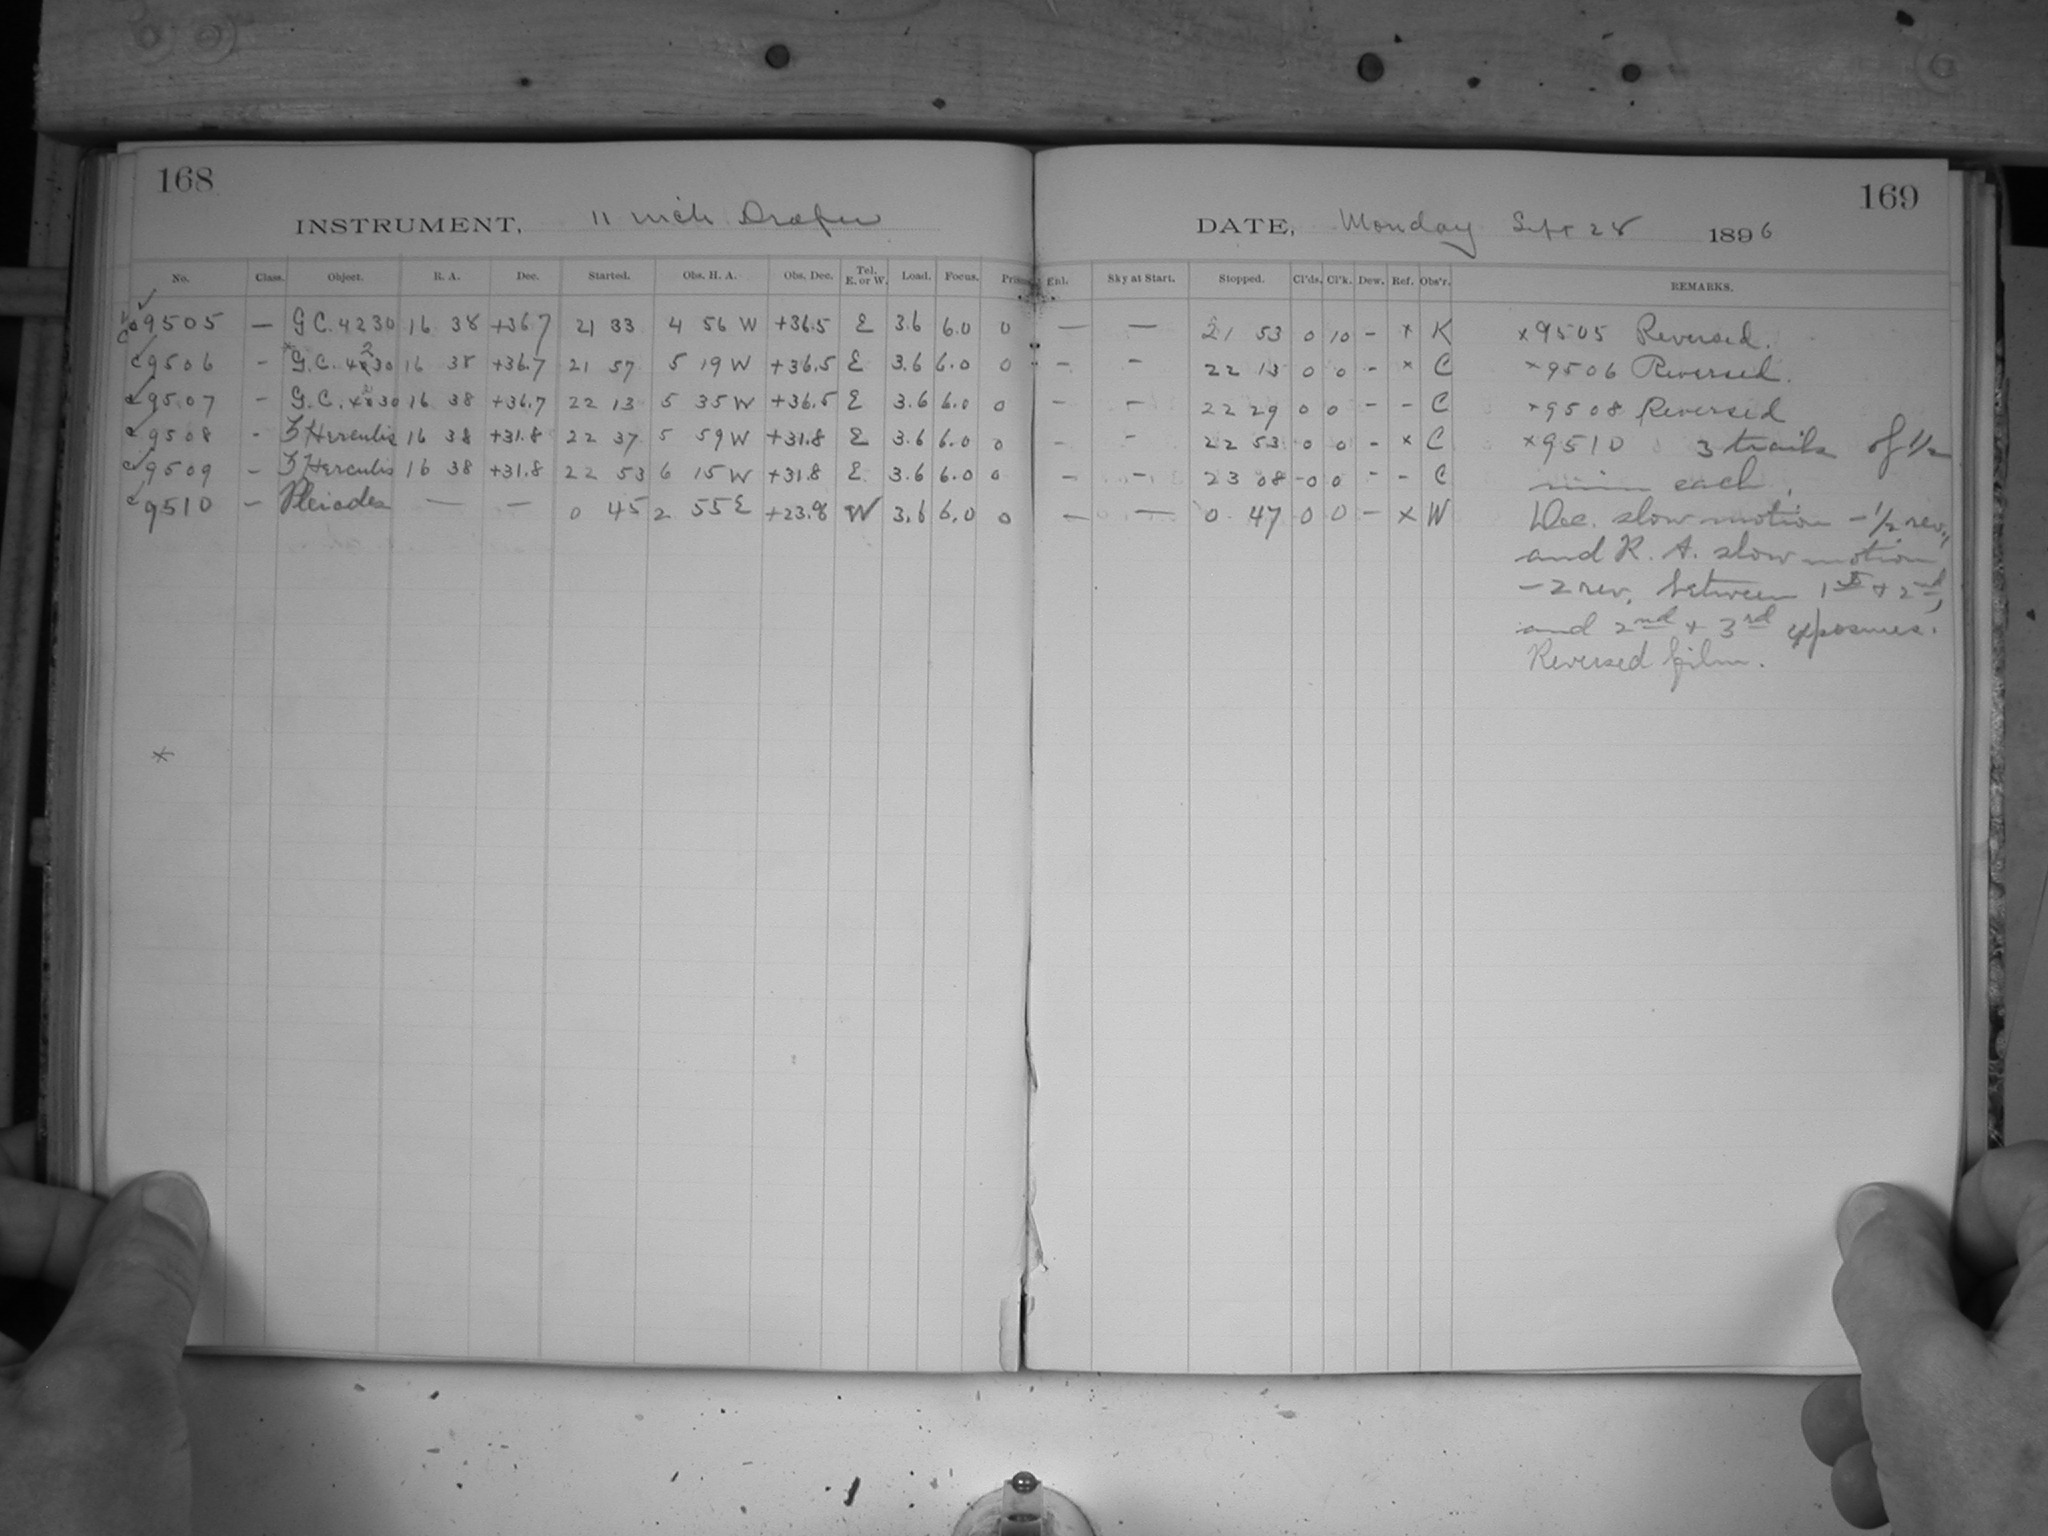 168
INSTRUMENT, 11 inch Draper
No. Class. Object. R. A. Dec. Started. Obs. H. A. Obs. Dec. Tel. E. or W. Load. Focus. Prisms
c 9505 — G.C. 4230 16 38 +36.7 21 33 4 56 W +36.5 E 3.6 6.0 0
c 9506 - G.C. 4230 16 38 +36.7 21 57 5 19 W +36.5 E 3.6 6.0 0
c 9507 - G.C. 4230 16 38 +36.7 22 13 5 35 W +36.5 E 3.6 6.0 0
c 9508 - ζ Herculis 16 38 +31.8 22 37 5 59 W +31.8 E 3.6 6.0 0
c 9509 - ζ Herculis 16 38 +31.8 22 53 6 15 W +31.8 E 3.6 6.0 0
c 9510 - Pleiades — — 0 45 2 55 E +23.8 W 3.6 6.0 0
*
169
DATE, Monday Sept 28 1896
Enl. Sky at Start. Stopped. Cl'ds. Cl'k. Dew. Ref. Obs'r. REMARKS.
— — 21 53 0 10 - x K
- - 22 13 0 0 - x C
- - 22 29 0 0 - - C
- - 22 53 0 0 - x C
- - 23 08 0 0 - - C
- — 0 47 0 0 - x W
x9505 Reversed.
x9506 Reversed.
x9508 Reversed
x9510 3 trails of 1/2
min each,
Dec. slow motion -1/2 rev.,
and R. A. slow motion
-2 rev. between 1st + 2nd,
and 2nd + 3rd exposures.
Reversed film.